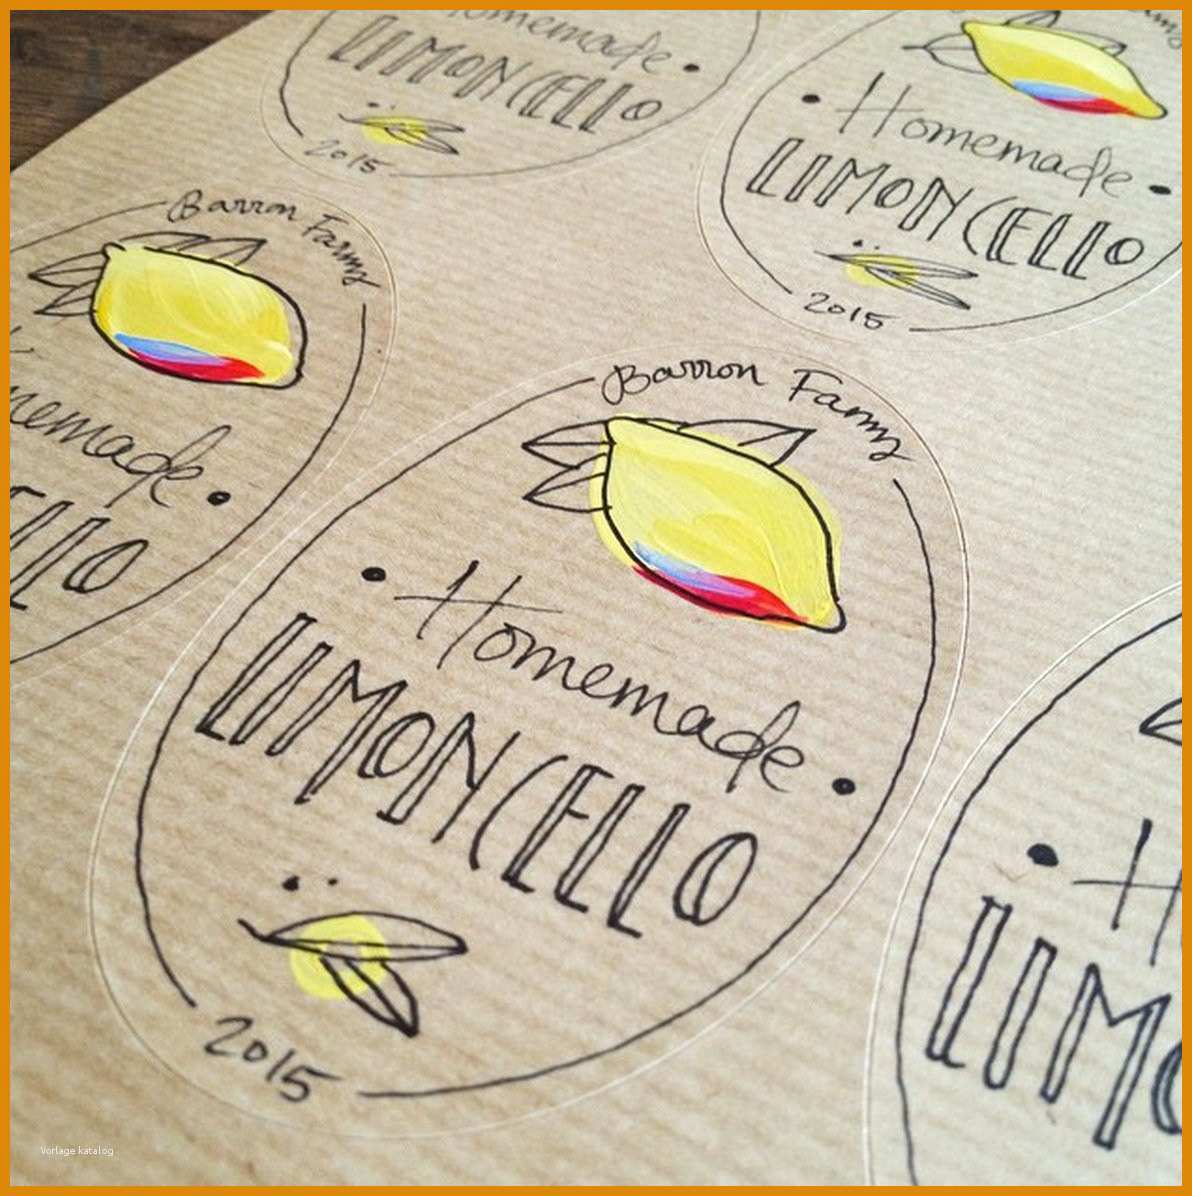 Homemade
LIMONCELLO
2015
Homemade
LIMONCELLO
2015
Barron Farms
emade
LLO
Barron Farms
Homemade
LIMONCELLO
2015
H
LIMO
Vorlage katalog